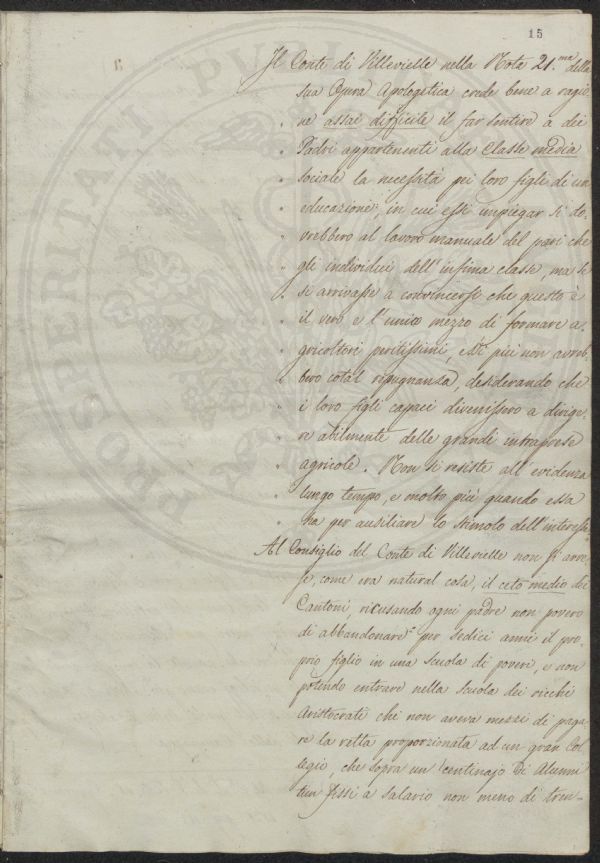 15
Il Conte di Villevielle nella Nota 21.ma della
sua Opera Apologetica crede bene a ragio
ne assai difficile il far sentire a dei
" Padri appartenenti alla Classe media
" sociale la necessità pei loro figli di un
" educazione, in cui essi impiegar si do„
" vrebbero al lavoro manuale del pari che
" gli individui dell' infima classe, ma se
" si arrivasse a convincerse che questo è
" il vero e l'unico mezzo di formare a„
" gricoltori peritissimi, essi più non avreb„
" bero cotal ripugnanza, desiderando che
" i loro figli capaci divenissero a dirige„
" re abilmente delle grandi intraprese
" agricole. Non si resiste all' evidenza
" lungo tempo, e molto più quando essa
" ha per ausiliare lo stimolo dell'interesse.
Al Consiglio del Conte di Villevielle non si arre„
se, come era natural cosa, il ceto medio dei
Cantoni, ricusando ogni padre non povero
di abbandonare per sedici anni il pro„
prio figlio in una scuola di poveri, e non
potendo entrare nella scuola dei ricchi
Aristocrati chi non aveva mezzi di paga„
re la retta proporzionata ad un gran Col„
legio, che sopra un centinajo di Alunni
tien fissi a salario non meno di tren„
PROSPERITATI PUBLICAE